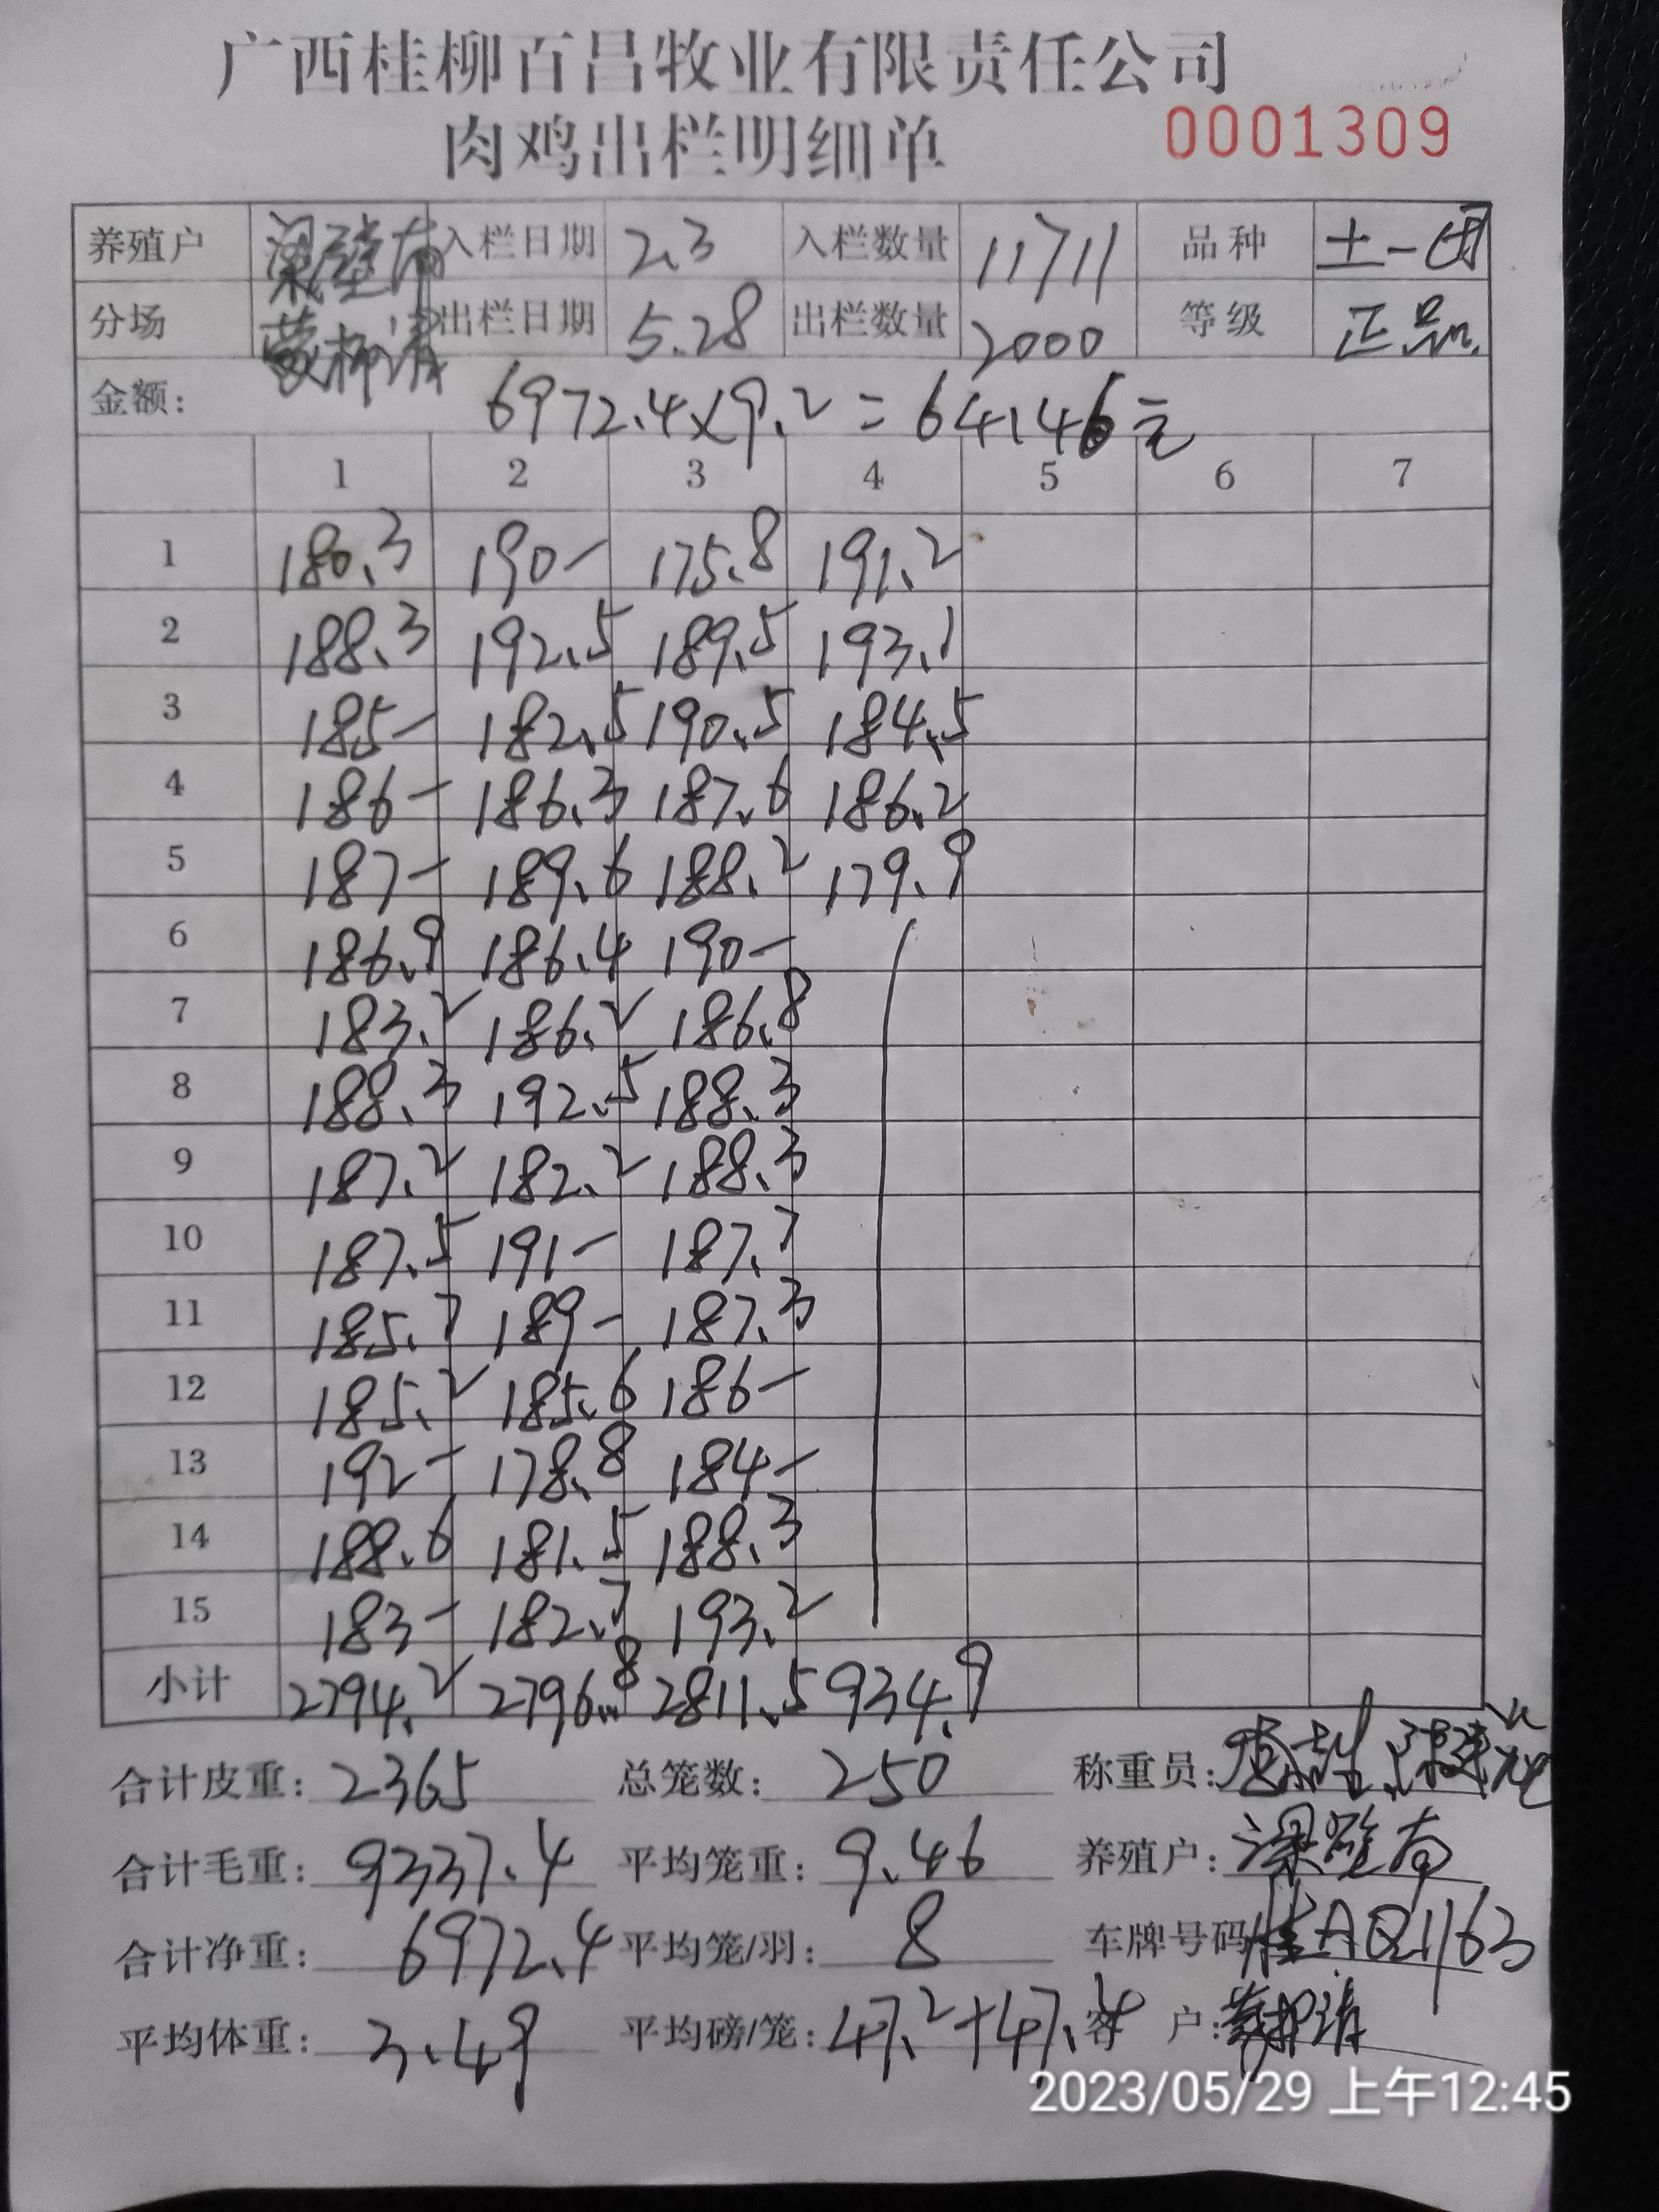 广西桂柳百昌牧业有限责任公司
肉鸡出栏明细单 0001309
养殖户 入栏日期 2.3 入栏数量 11711 品种 土一
分场 出栏日期 5.28 出栏数量 2000 等级 正品
金额: 6972.4×9.2=64146元
1 2 3 4 5 6 7
1 180.3 190- 175.8 191.2
2 188.3 192.5 189.5 193.1
3 185- 182.5 190.5 184.5
4 186- 186.3 187.6 186.2
5 187- 189.6 188.2 179.9
6 186.9 186.4 190-
7 183.2 186.2 186.8
8 188.3 192.5 188.3
9 187.2 182.2 188.3
10 187.5 191- 187.7
11 185.7 189- 187.3
12 185.2 185.6 186-
13 192- 178.8 184-
14 188.6 181.5 188.3
15 183- 182.7 193.2
小计 2794.2 2796.8 2811.5 934.9
合计皮重: 2365 总笼数: 250 称重员:
合计毛重: 9337.4 平均笼重: 9.46 养殖户:
合计净重: 6972.4 平均笼/羽: 8 车牌号码 桂AQ1163
平均体重: 3.49 平均磅/笼: 47.2+47.4 客户:
2023/05/29 上午12:45